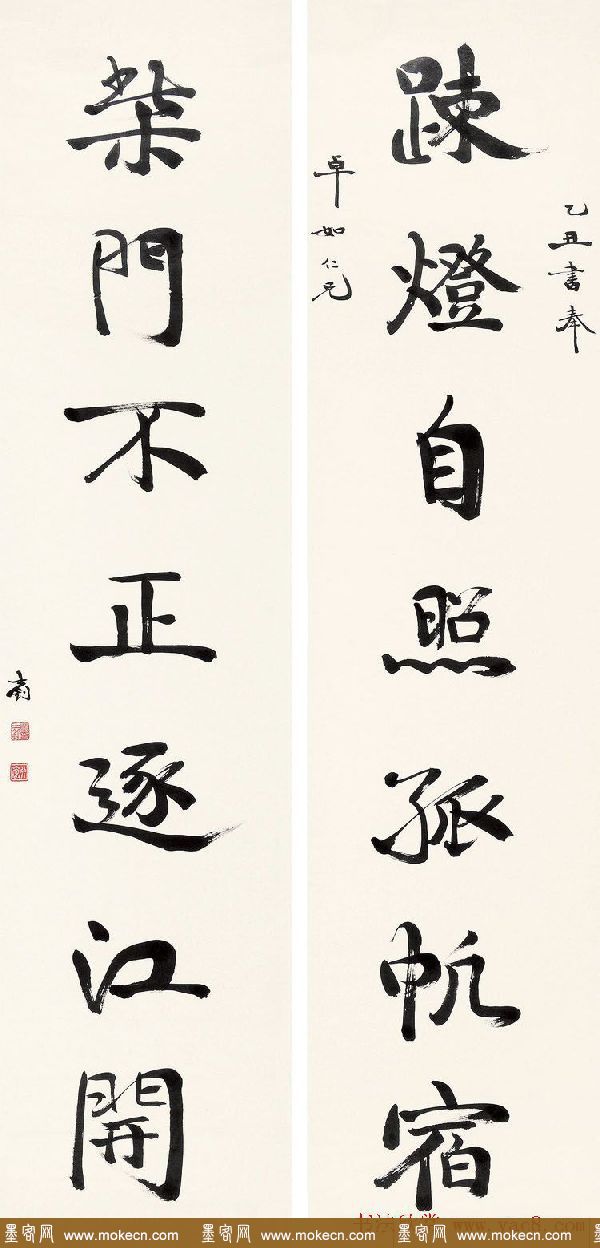 乙丑書奉
踈燈自照孤帆宿
卓如仁兄
柴門不正逐江開
www.yac8.com
墨客网 www.mokecn.com 墨客网 www.mokecn.com 墨客网 www.mokecn.com